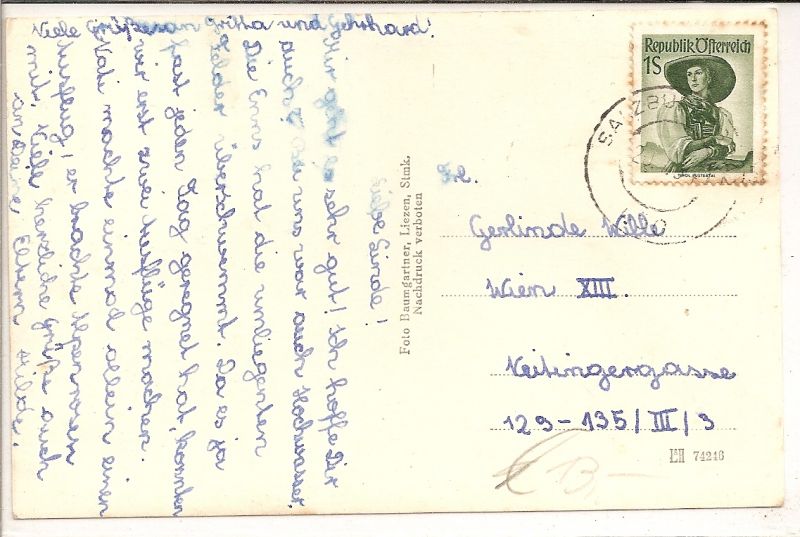 Viele Grüße an Gritta und Gerhard!
Liebe Linde!
Mir geht es sehr gut! Ich hoffe Dir
auch! Bei uns war auch Hochwasser.
Die Enns hat die umliegenten
Felder überschwemmt. Da es ja
fast jeden Tag geregnet hat, konnten
wir erst zwei Ausflüge machen.
Vati machte einmal allein einen
Ausflug, er brachte Alpenrosen
mit. Viele herzliche Grüße auch
an Deine Eltern Hilde.
Foto Baumgartner, Liezen, Stmk.
Nachdruck verboten
Republik Österreich
1S
TIROL, PUSTERTAL
SALZBU
Frl.
Gerlinde Wille
Wien XIII.
Veitingergasse
129-135/III/3
74216
13,-